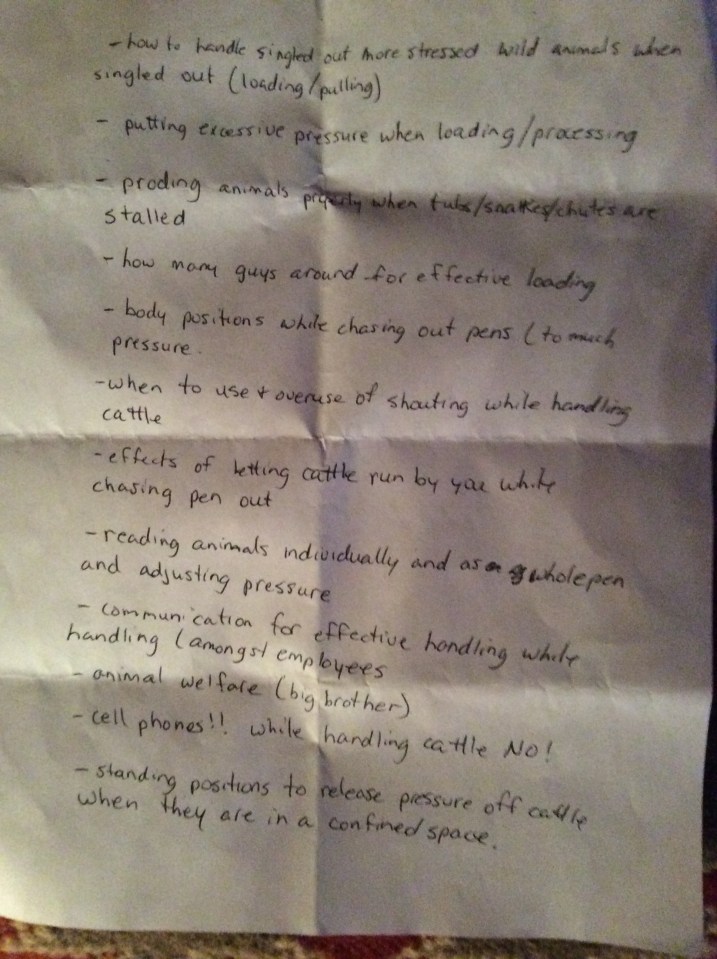 - how to handle singled out more stressed wild animals when
singled out (loading/pulling)
- putting excessive pressure when loading/processing
- proding animals properly when tubs/snakes/chutes are
stalled
- how many guys around for effective loading
- body positions while chasing out pens (to much
pressure.
- when to use + overuse of shouting while handling
cattle
- effects of letting cattle run by you while
chasing pen out
- reading animals individually and as a whole pen
and adjusting pressure
- communication for effective handling while
handling (amongst employees
- animal welfare (big brother)
- cell phones!! while handling cattle No!
- standing positions to release pressure off cattle
when they are in a confined space.